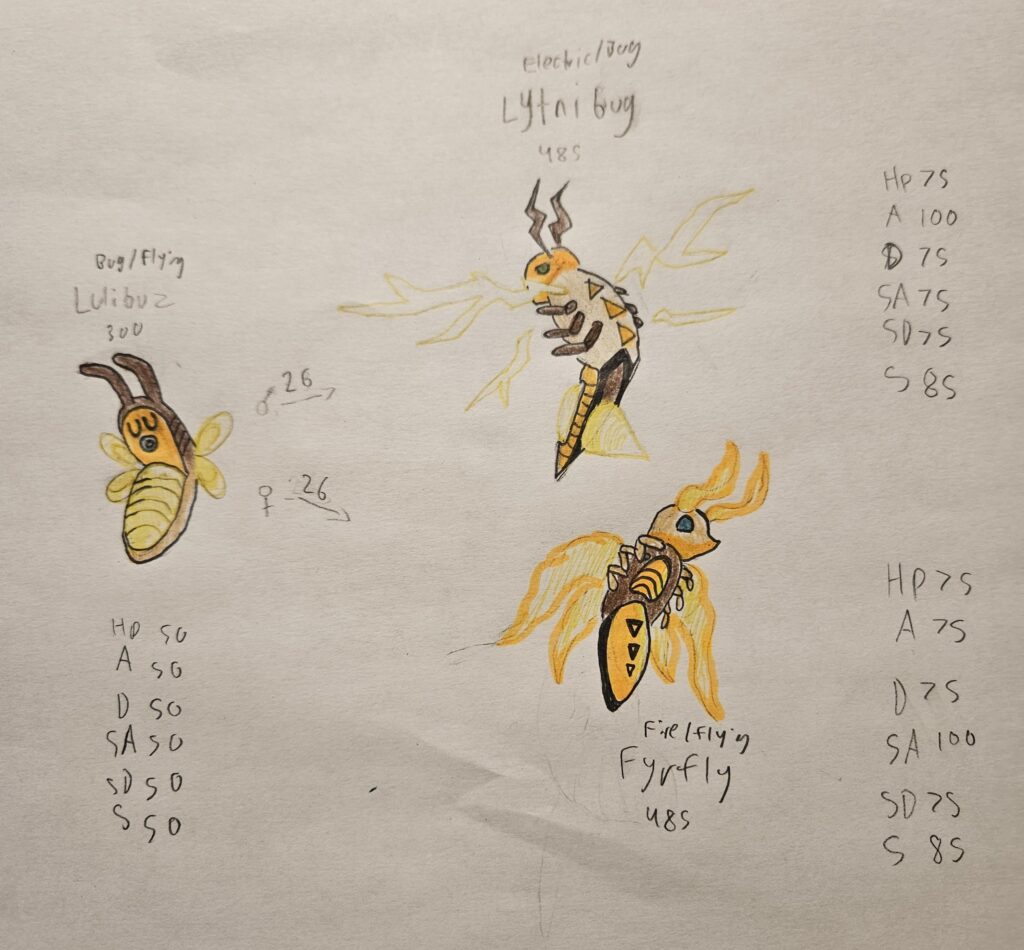 Electric/Bug
Lytnibug
485
Hp 75
A 100
D 75
SA 75
SD 75
S 85
Bug/Flying
Lulibuz
300
♂ 26
♀ 26
Hp 50
A 50
D 50
SA 50
SD 50
S 50
Fire/flying
Fyrfly
485
HP 75
A 75
D 75
SA 100
SD 75
S 85